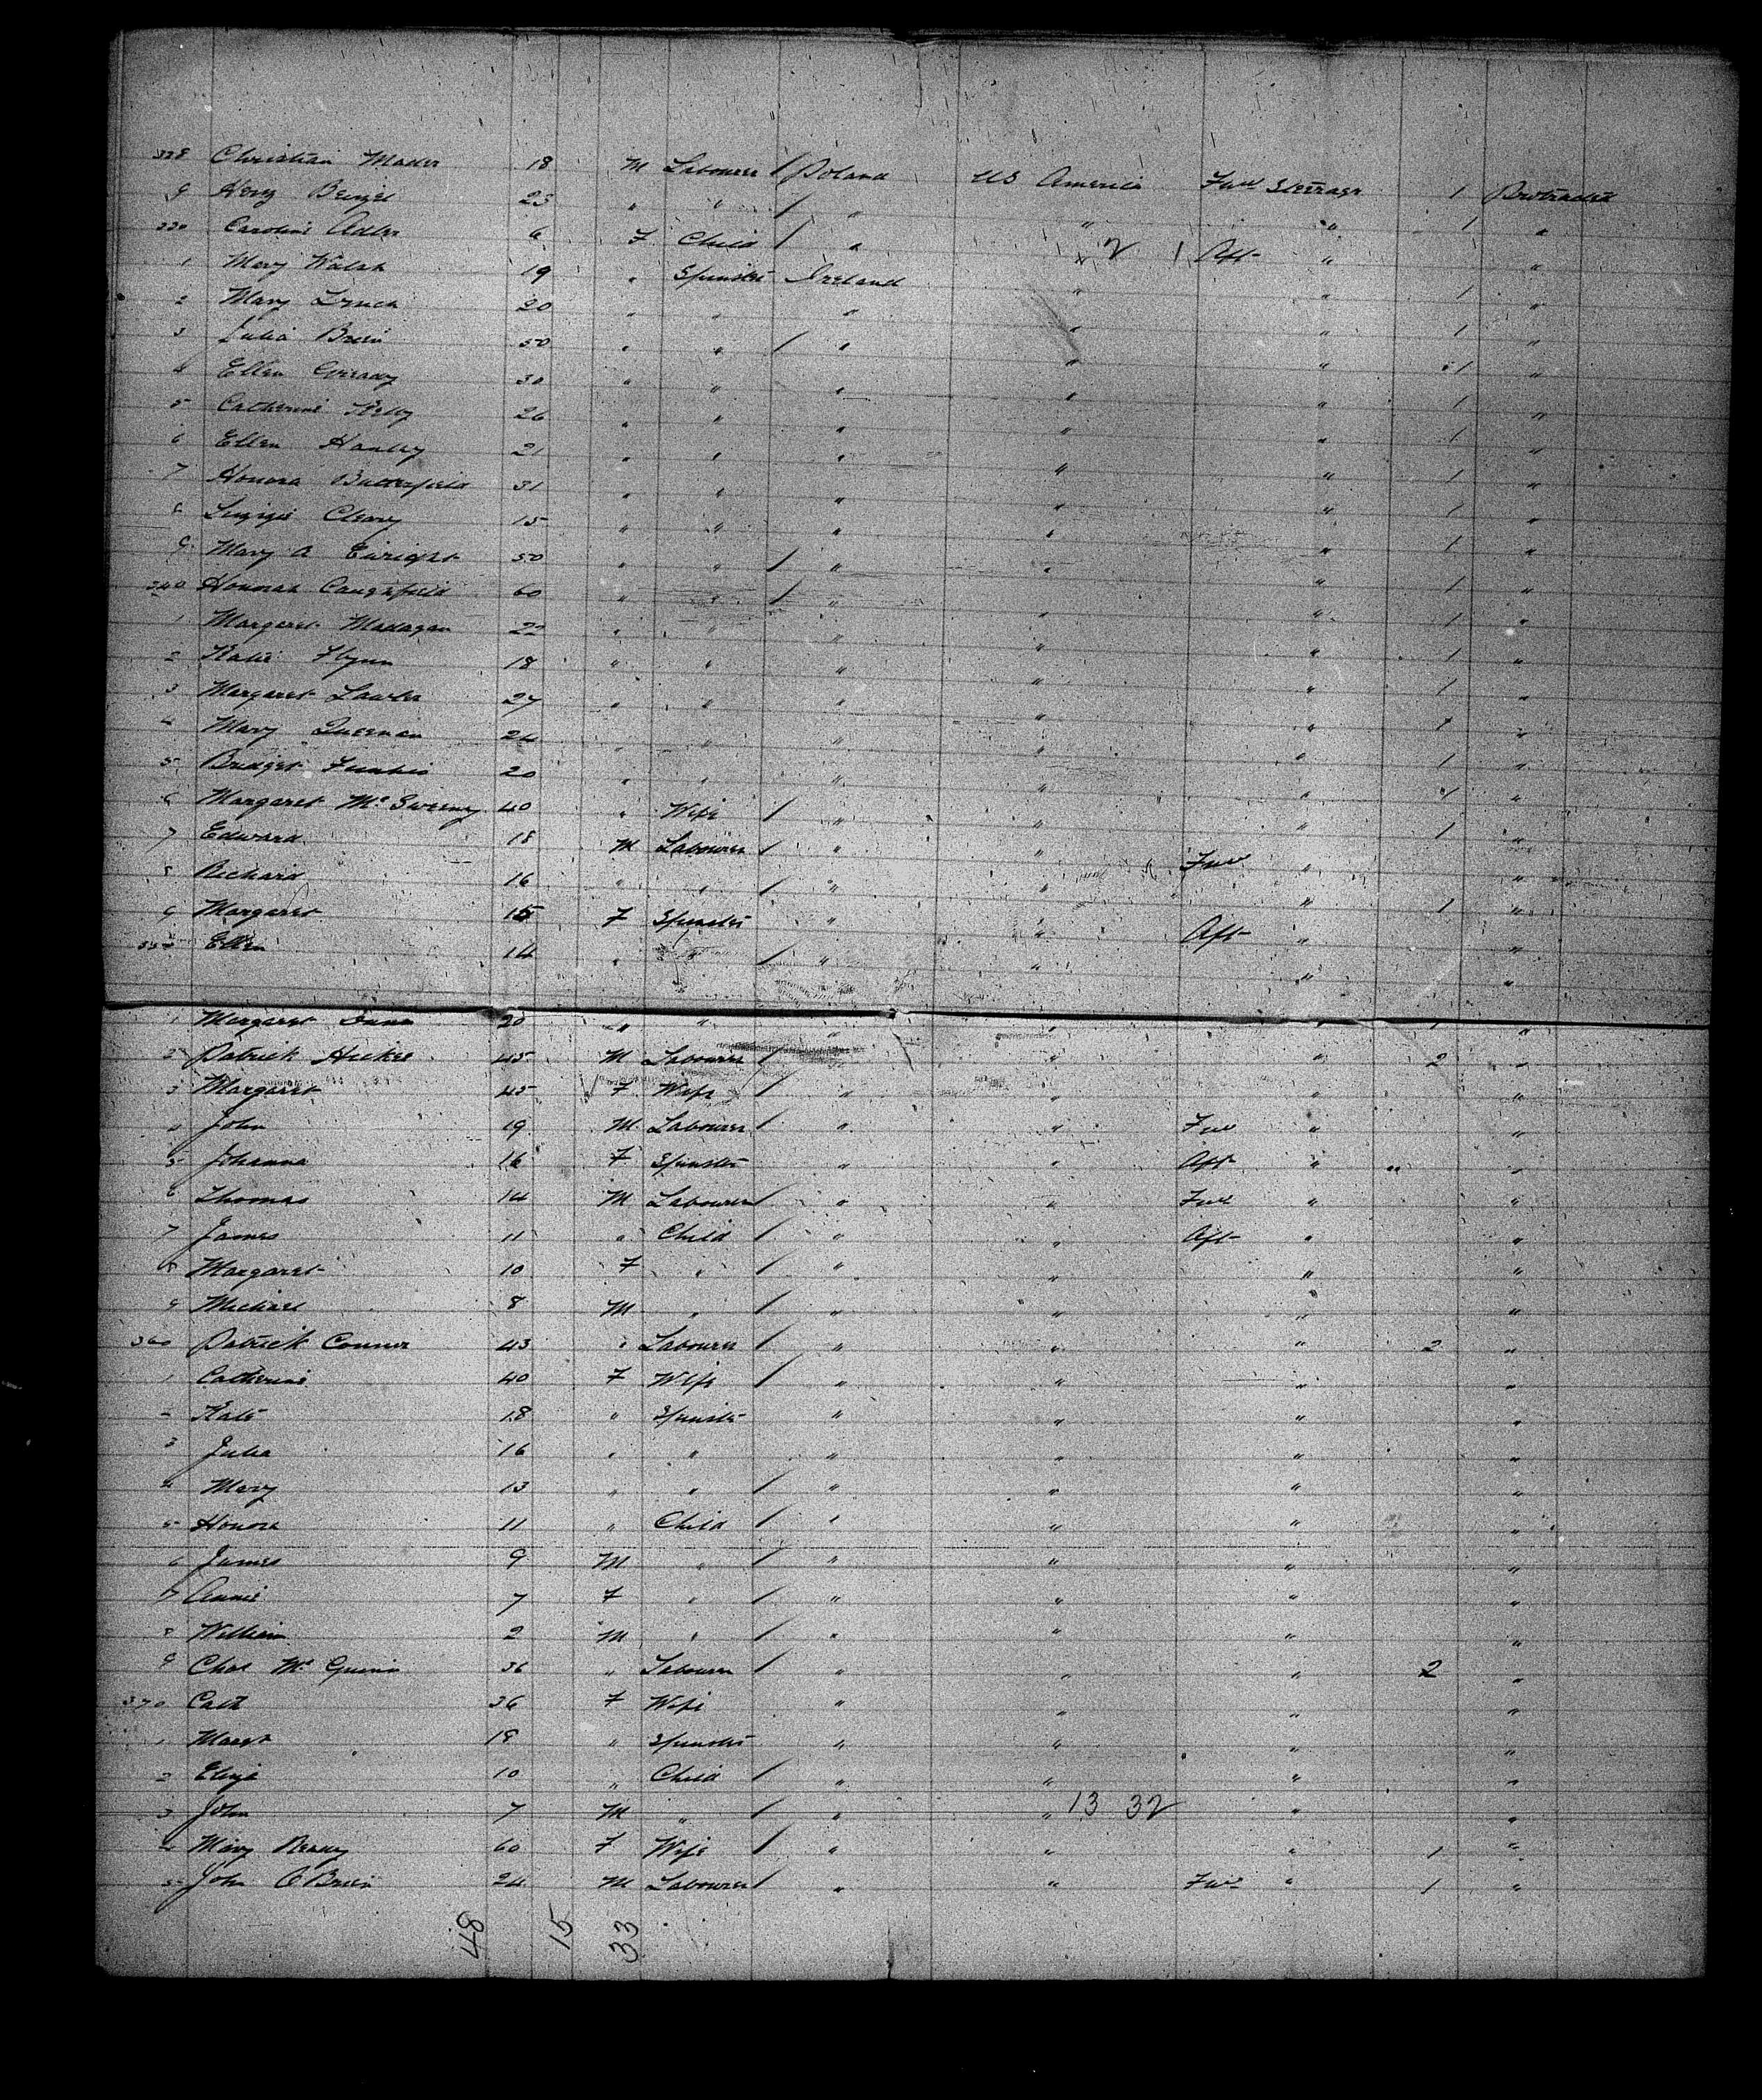 328 Christian Mader 18 M Labourer / Poland US America Fwd Steerage 1 Protracted
9 Henry 23 " " / " " " 1 "
330 Caroline Adler 6 F Child / " " 2 1 Aft " "
1 Mary Walsh 19 " Spinster Ireland " " 1 "
2 Mary Lynch 20 " " " " " 1 "
3 Julia Brien 50 " " / " " " 1 "
4 Ellen Grready 30 " " " " " 1 "
5 Catherine Kelly 26 " " " " " 1 "
6 Ellen Hanley 21 " " " " " 1 "
7 Honora Butterfield 31 " " " " " 1 "
8 Lizzie Cleary 15 " " " " " 1 "
9 Mary A Enright 50 " " / " " " 1 "
340 Honorah 60 " " / " " " 1 "
1 Margaret Madagan 22 " " " " " 1 "
2 Katie Flynn 18 " " " " " 1 "
3 Margaret Lawler 27 " " " " " 1 "
4 Mary 24 " " " " " 1 "
5 Bridget 20 " " " " " 1 "
6 Margaret McSweeny 40 " Wife / " " " 1 "
7 Edward 18 M Labourer / " " Fwd " "
8 Richard 16 " " / " " " 1 "
9 Margaret 15 F Spinster " " Aft " "
350 Ellen 14 " " / " " " "
1 Margaret 20 " " " " " 1 "
2 Patrick Hickee 45 M Labourer / " " 2 "
3 Margaret 45 F Wife / " " " "
4 John 19 M Labourer / " " Fwd " "
5 Johanna 16 F Spinster " " Aft " "
6 Thomas 14 M Labourer / " " Fwd " "
7 James 11 " Child / " " Aft " "
8 Margaret 10 F " / " " " "
9 Michael 8 M " / " " " "
360 Patrick Connor 43 " Labourer / " " " 2 "
1 Catherine 40 F Wife / " " " "
2 Kate 18 " Spinster " " " "
3 Julia 16 " " " " " "
4 Mary 13 " " / " " " "
5 Honora 11 " Child / " " " "
6 James 9 M " / " " " "
7 Annie 7 F " / " " " "
8 William 2 M " / " " " "
9 Chas 36 " Labourer / " " " 2 "
370 Cath 36 F Wife " " " "
1 Margt 18 " Spinster " " " "
2 Eliza 10 " Child / " " " "
3 John 7 M " / " " 13 32 " "
4 Mary Ready 60 F Wife / " " " 1 "
5 John O'Brien 24 M Labourer / " " Fwd " 1 "
48 15 33